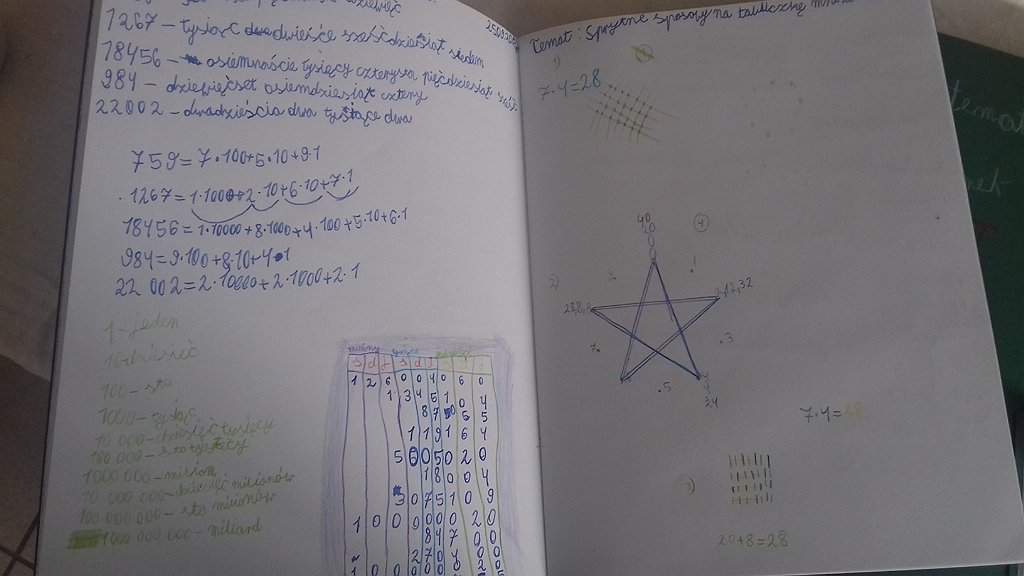 dziewięć
1267 - tysiąc dwieście sześćdziesiąt siedem
18456 - osiemnaście tysięcy czterysta pięćdziesiąt sześć
984 - dziewięćset osiemdziesiąt cztery
22002 - dwadzieścia dwa tysiące dwa
759 = 7·100+5·10+9·1
1267 = 1·1000+2·10+6·10+7·1
18456 = 1·10000+8·1000+4·100+5·10+6·1
984 = 9·100+8·10+4·1
22 002 = 2·10000+2·1000+2·1
1 - jeden
10 dziesięć
100 - sto
1000 - tysiąc
10 000 - dziesięć tysięcy
100 000 - sto tysięcy
1000 000 - milion
10 000 000 - dziesięć milionów
100 000 000 - sto milionów
1000 000 000 - miliard
miliony
s d j s d j
1 2 6 0 0 4 0 6 0
1 3 4 5 1 0 4
1 1 9 1 6 4
5 0 5 0 2 0
1 8 0 0 4
3 0 7 5 1 0 9
1 0 0 9 0 0 0 2 0
Temat: Sprytne sposoby na tabliczkę
1)
7·4=28
40
20
0
4
1
9
2)
28,8,8
2,12,32
7
3
5
4
24
7·4=28
3)
20+8=28